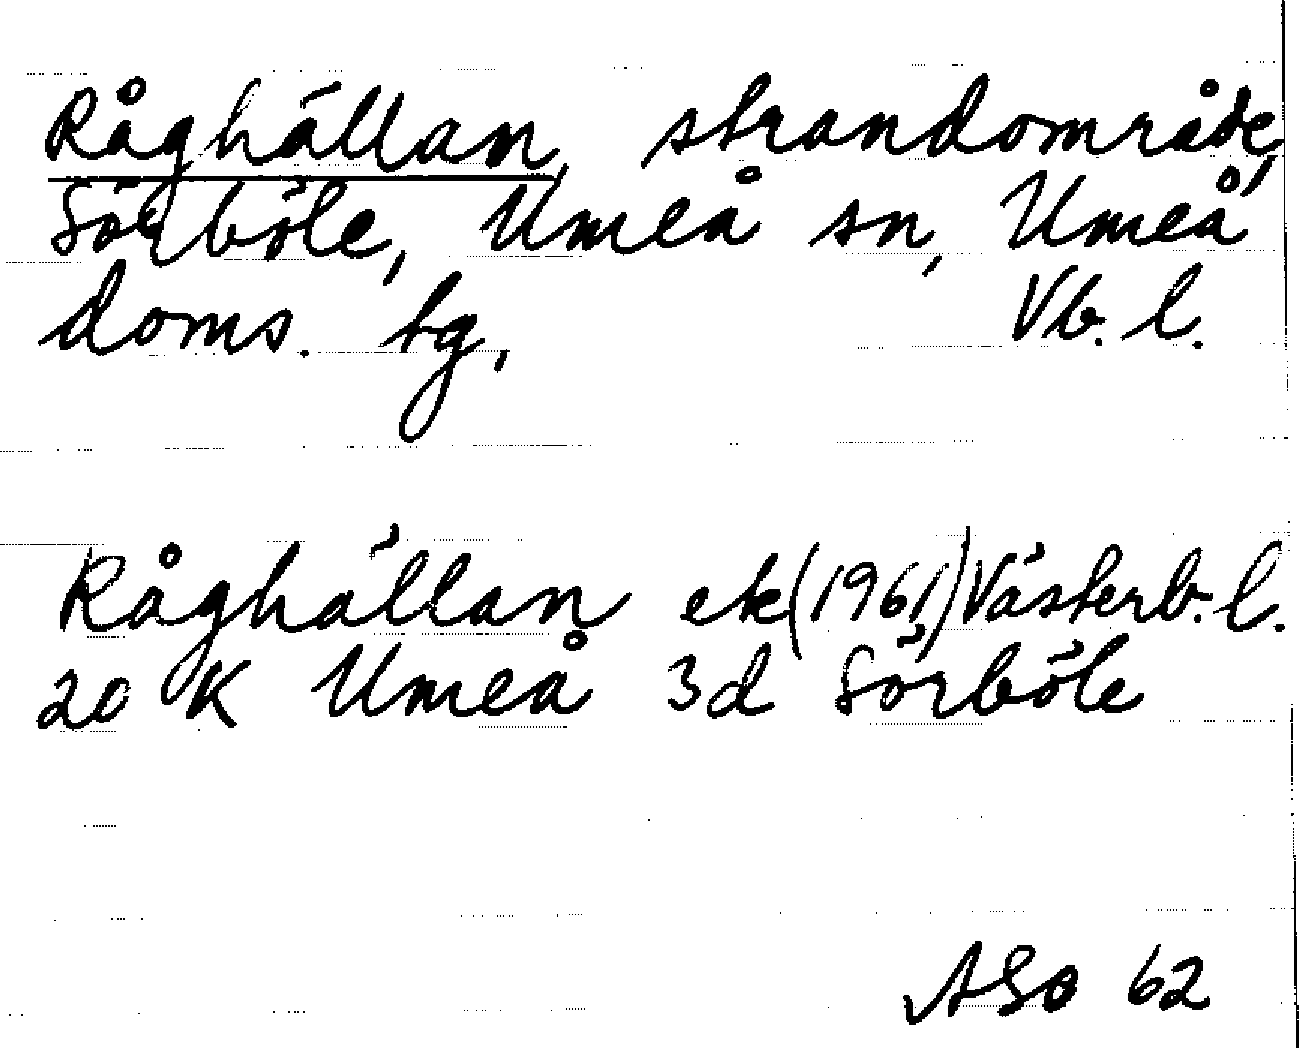 Råghällan, strandområde,
Sörböle, Umeå sn, Umeå
doms. tg, Vb. l.
Råghällan ek (1961) Västerb. l.
20 K Umeå 3d Sörböle
ASo 62